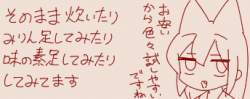 そのまま炊いたり
みりん足してみたり
味の素足してみたり
してみてます
お安い
から色々試しやすい
ですね